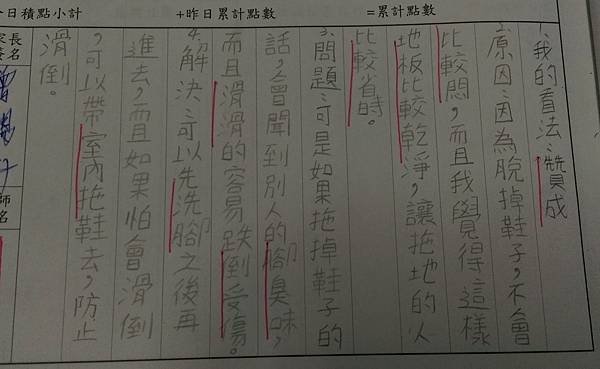 日積點小計
+昨日累計點數
=累計點數
1.我的看法:贊成
2.原因:因為脫掉鞋子,不會
比較悶,而且我覺得這樣
地板比較乾淨,讓拖地的人
比較省時。
3.問題:可是如果拖掉鞋子的
話,會聞到別人的腳臭味,
而且滑滑的容易跌倒受傷。
4.解決:可以先洗腳之後再
進去,而且如果怕會滑倒
,可以帶室內拖鞋去,防止
滑倒。
長名
師名